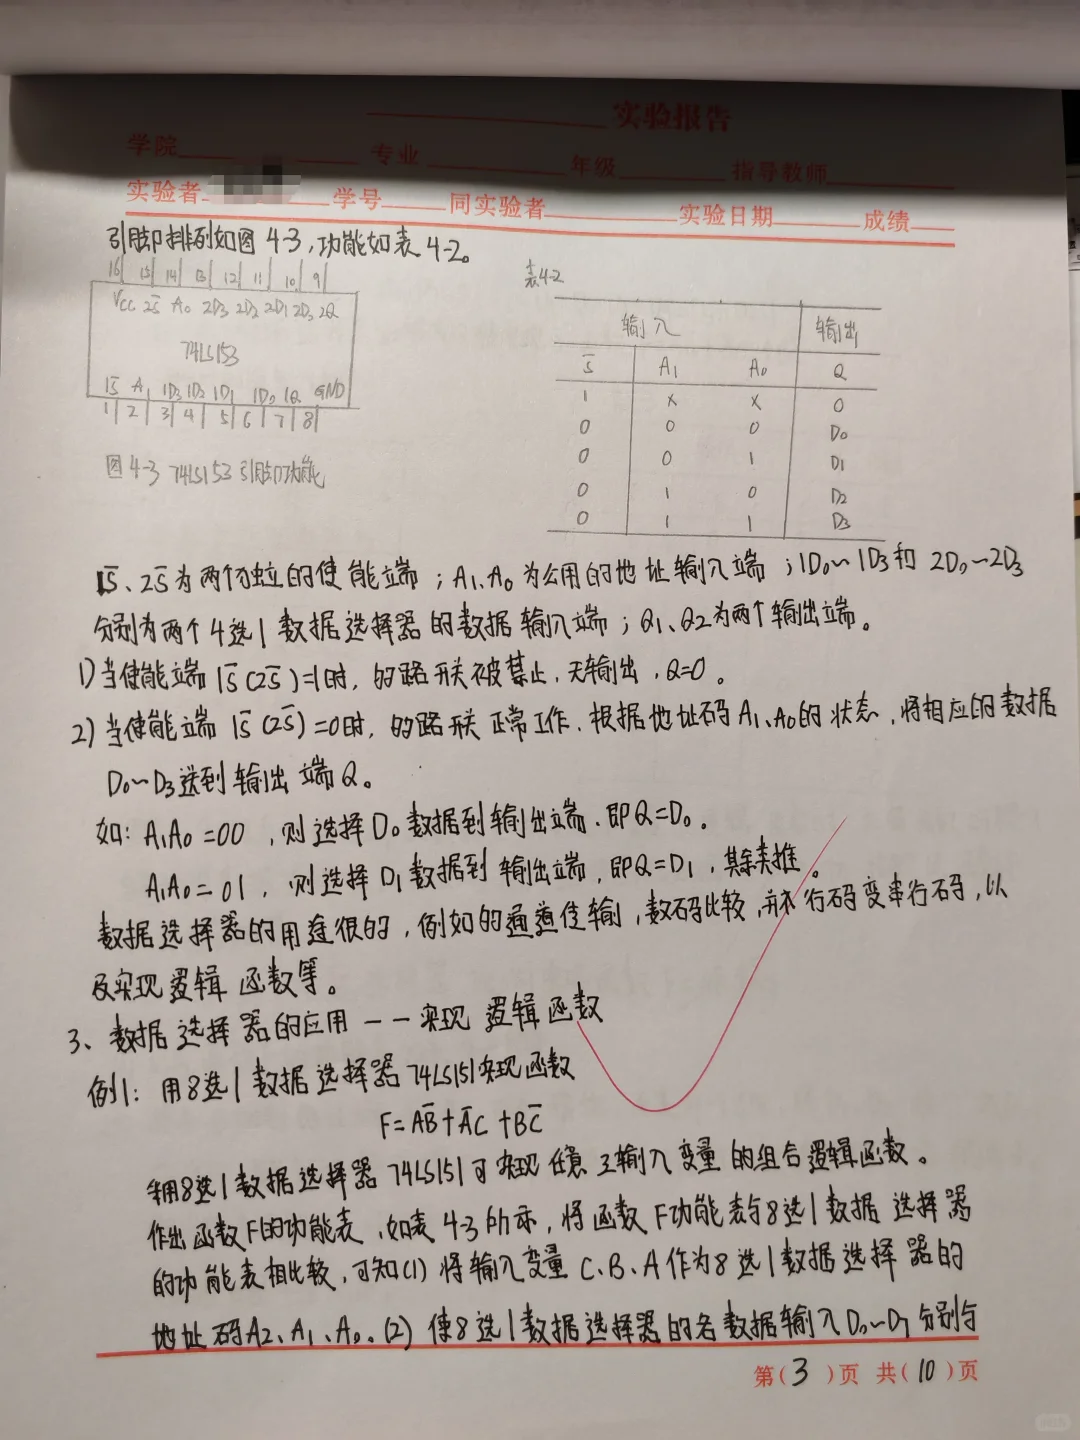 实验报告
学院 专业 年级 指导教师
实验者 学号 同实验者 实验日期 成绩
引脚排列如图4-3,功能如表4-2。
16 15 14 13 12 11 10 9
Vcc 2S̅ A₀ 2D₃ 2D₂ 2D₁ 2D₃ 2Q
74LS153
1S̅ A₁ 1D₃ 1D₂ 1D₁ 1D₀ 1Q GND
1 2 3 4 5 6 7 8
图4-3 74LS153引脚功能
表4-2
输入 输出
S̅ A₁ A₀ Q
1 x x 0
0 0 0 D₀
0 0 1 D₁
0 1 0 D₂
0 1 1 D₃
1S̅、2S̅为两个独立的使能端;A₁、A₀为公用的地址输入端;1D₀~1D₃和2D₀~2D₃
分别为两个4选1数据选择器的数据输入端;Q₁、Q₂为两个输出端。
1)当使能端1S̅(2S̅)=1时,的路开关被禁止,无输出,Q=0。
2)当使能端1S̅(2S̅)=0时,的路开关正常工作,根据地址码A₁、A₀的状态,将相应的数据
D₀~D₃送到输出端Q。
如:A₁A₀=00,则选择D₀数据到输出端、即Q=D₀。
A₁A₀=01,则选择D₁数据到输出端,即Q=D₁,其余类推。
数据选择器的用途很的,例如的通道传输,数码比较,并行码变串行码,以
及实现逻辑函数等。
3、数据选择器的应用——实现逻辑函数
例1:用8选1数据选择器74LS151实现函数
F=AB̅+A̅C+BC̅
用8选1数据选择器74LS151可实现任意三输入变量的组合逻辑函数。
作出函数F的功能表,如表4-3所示,将函数F功能表与8选1数据选择器
的功能表相比较,可知(1)将输入变量C、B、A作为8选1数据选择器的
地址码A₂、A₁、A₀。(2)使8选1数据选择器的各数据输入D₀~D₇分别与
第(3)页 共(10)页